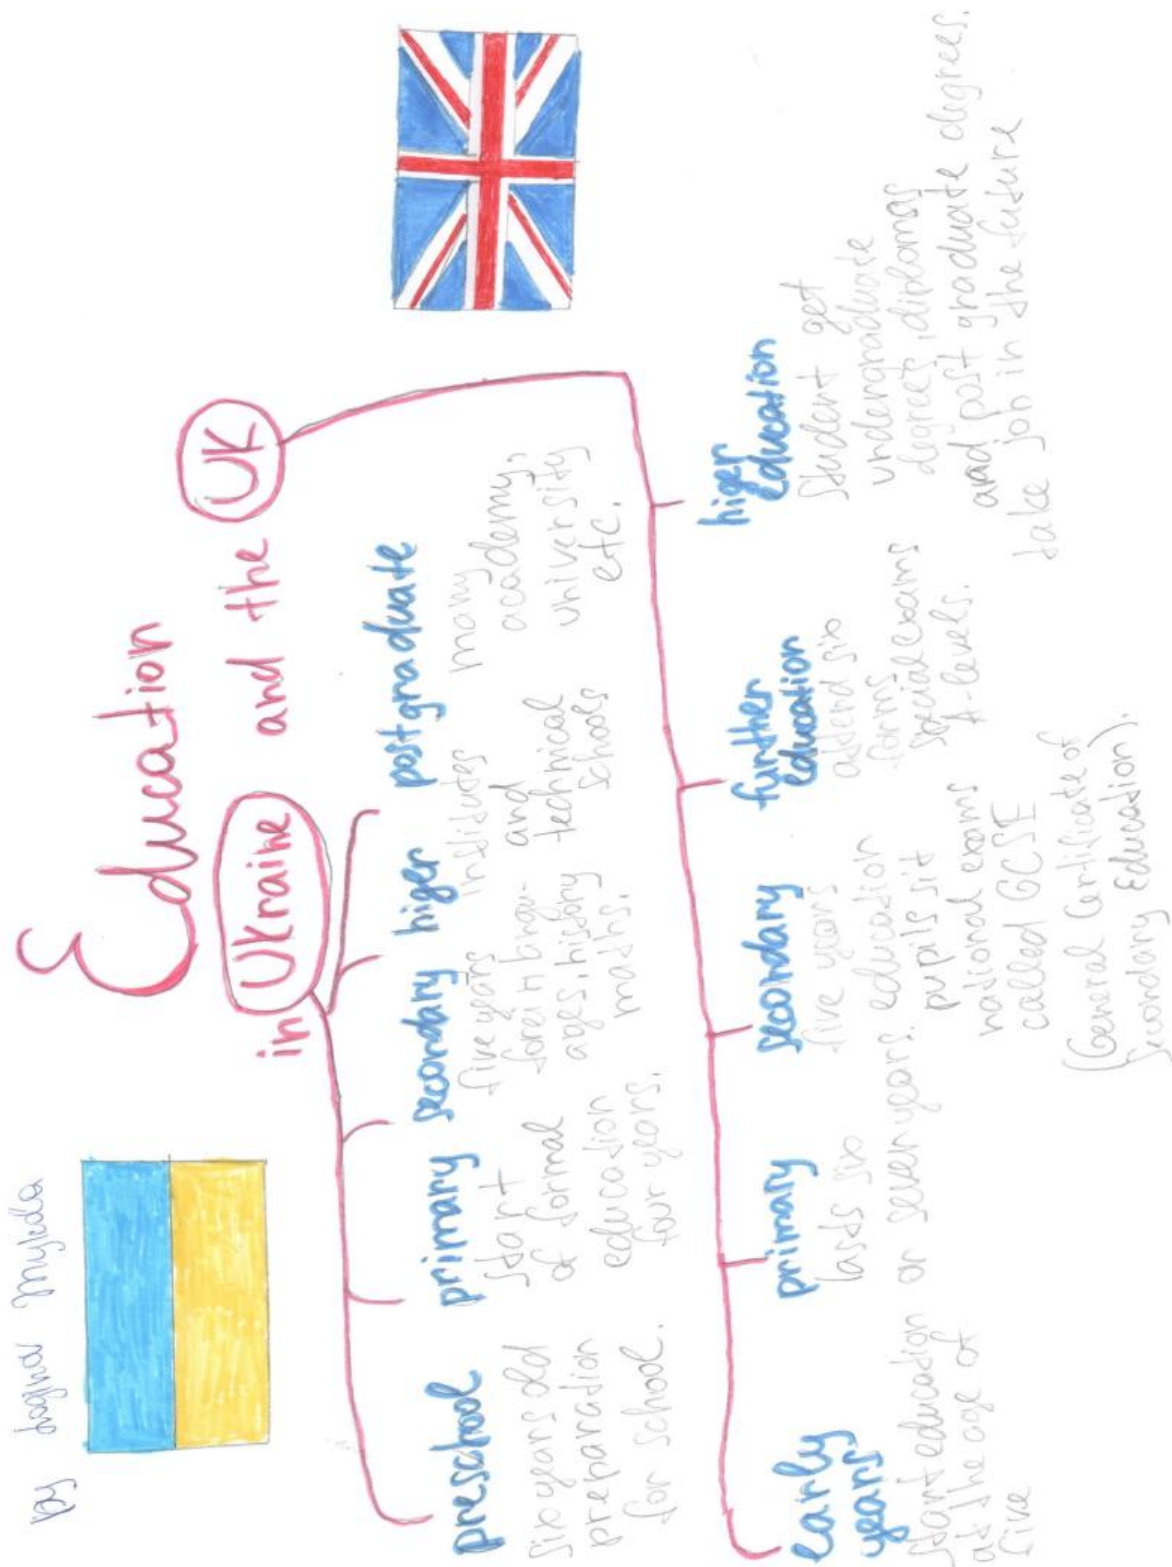 by
Education
in Ukraine and the UK
preschool
six years old
preparation
for school.
primary
start
of formal
education
four years.
secondary
five years
forein langu-
ages, history
maths.
higer
institutes
and
technical
schools
postgraduate
many
academy,
university
etc.
early
years
start education
at the age of
five
primary
lasts six
or seven years.
secondary
five years
education
pupils sit
national exams
called GCSE
(General Certificate of
Secondary Education).
further
education
attend six
forms
special exams
A-levels.
higer
education
student get
undergraduate
degrees, diplomas
and post graduate degrees.
take job in the future